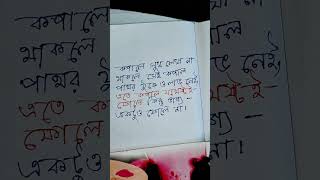 কপালে সুখ লেখা না
থাকলে, সেই কপাল
পাথরে ঠুকে ও লাভ নেই,
এতে কপাল যথেষ্টই
ফোলে কিন্তু ভাগ্য –
একটুও ফোলে না।